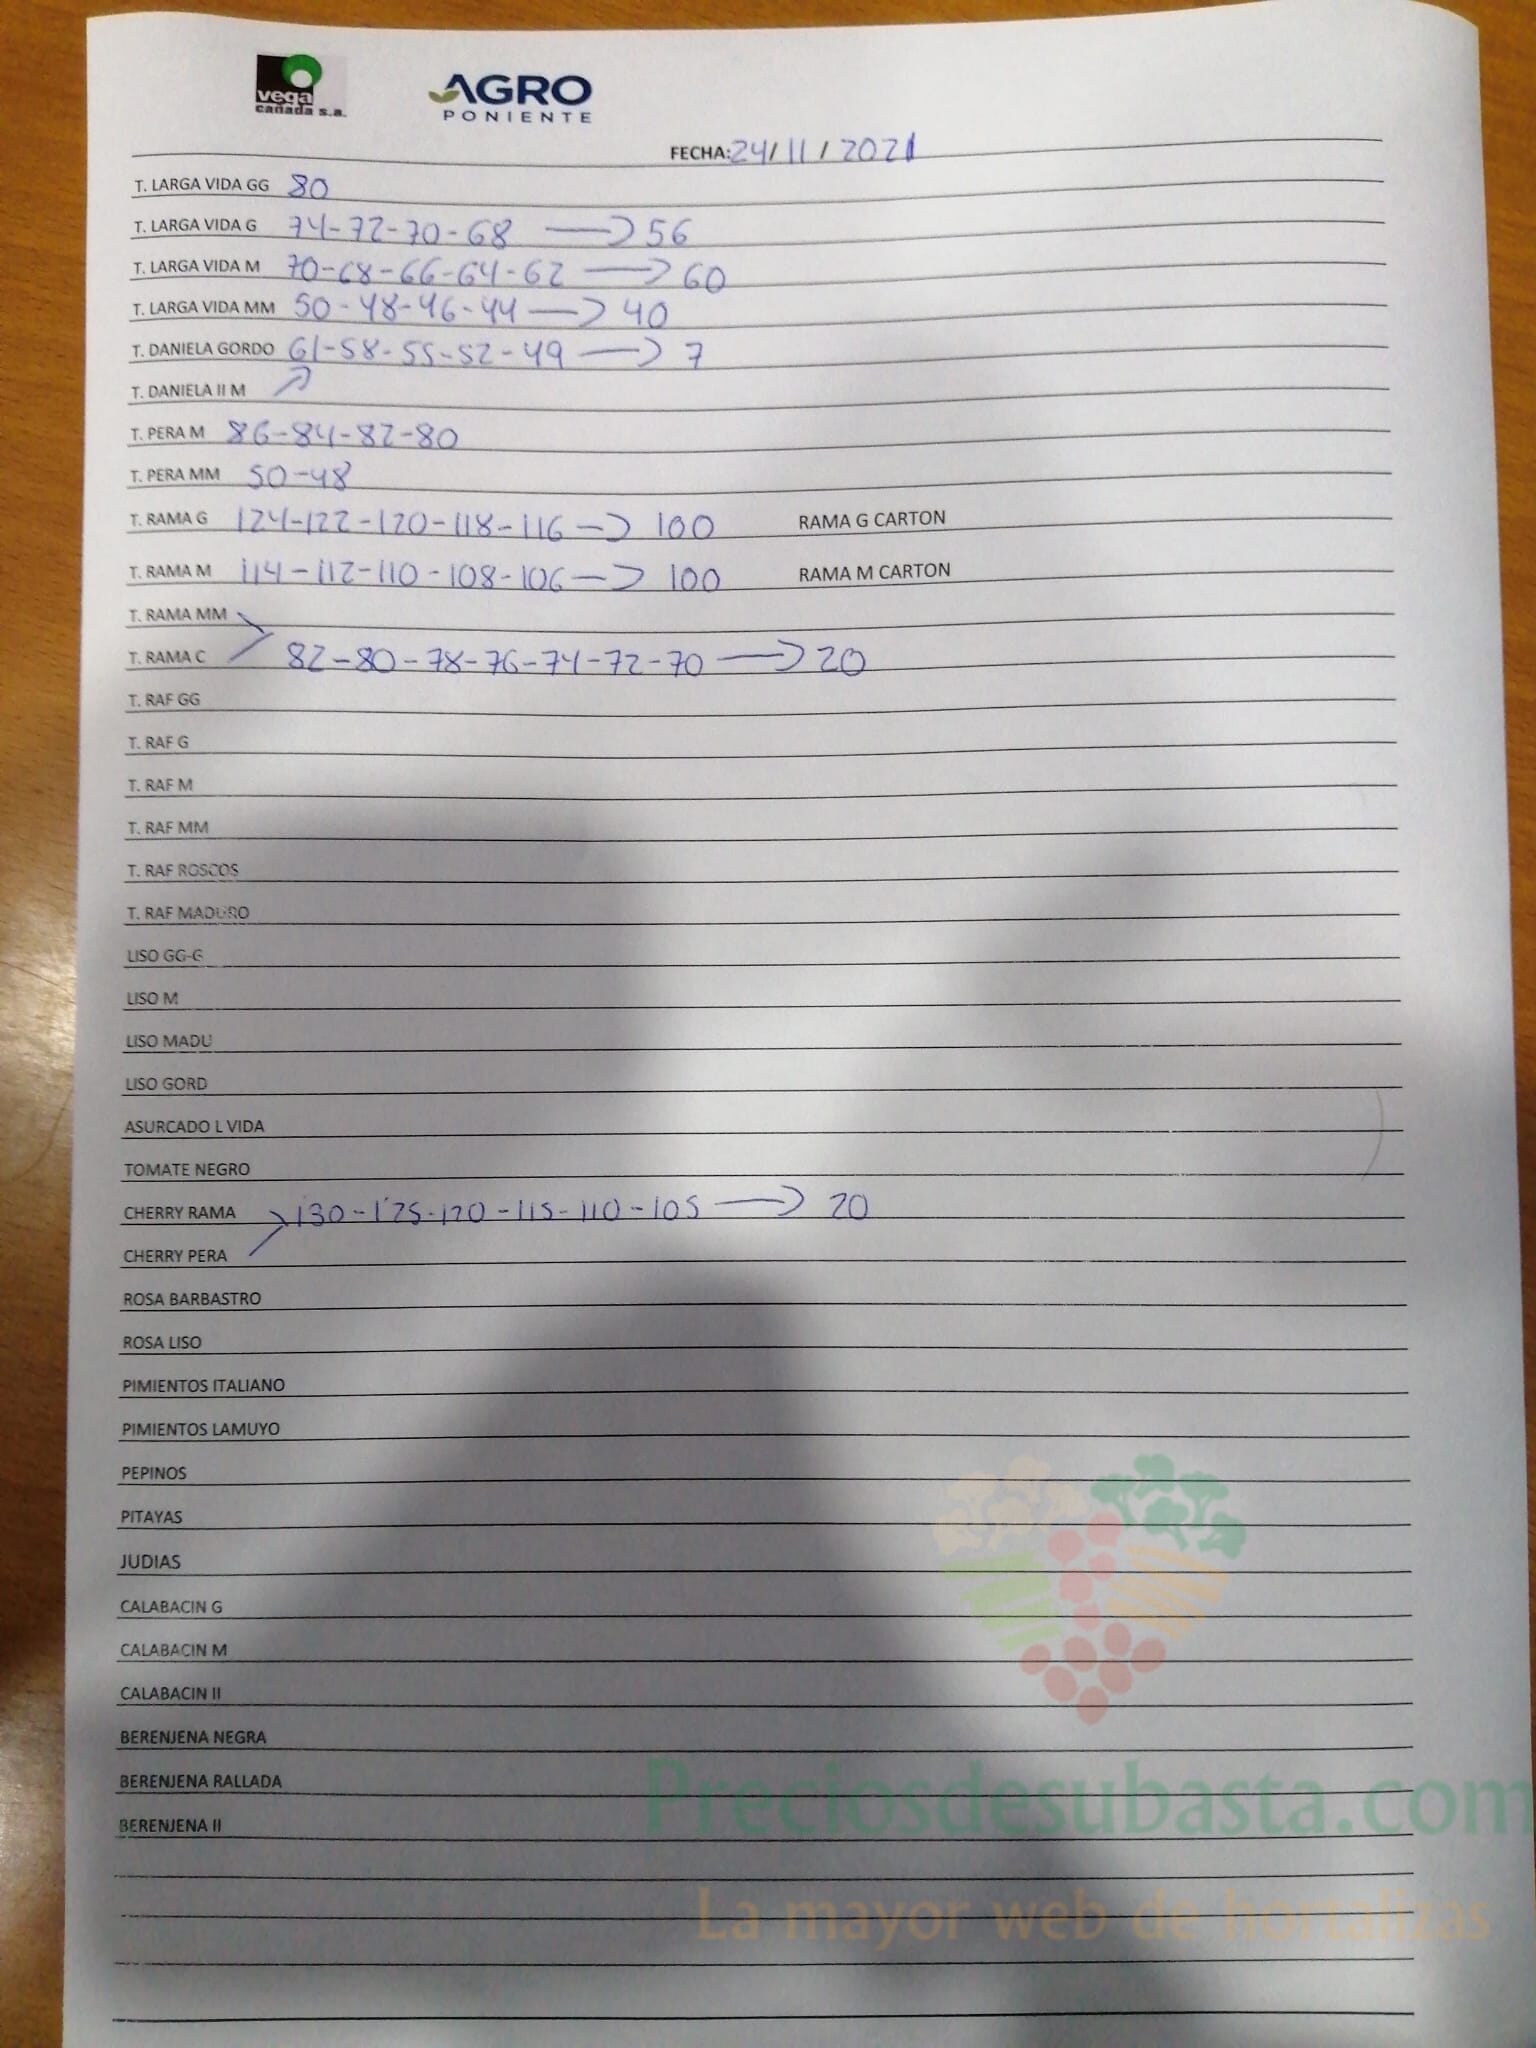 vega
cañada s.a.
AGRO
PONIENTE
FECHA: 24/11/2021
T. LARGA VIDA GG 80
T. LARGA VIDA G 74-72-70-68 → 56
T. LARGA VIDA M 70-68-66-64-62 → 60
T. LARGA VIDA MM 50-48-46-44 → 40
T. DANIELA GORDO 61-58-55-52-49 → 7
T. DANIELA II M
T. PERA M 86-84-82-80
T. PERA MM 50-48
T. RAMA G 124-122-120-118-116 → 100 RAMA G CARTON
T. RAMA M 114-112-110-108-106 → 100 RAMA M CARTON
T. RAMA MM
T. RAMA C 82-80-78-76-74-72-70 → 20
T. RAF GG
T. RAF G
T. RAF M
T. RAF MM
T. RAF ROSCOS
T. RAF MADURO
LISO GG-G
LISO M
LISO MADU
LISO GORD
ASURCADO L VIDA
TOMATE NEGRO
CHERRY RAMA 130-125-120-115-110-105 → 20
CHERRY PERA
ROSA BARBASTRO
ROSA LISO
PIMIENTOS ITALIANO
PIMIENTOS LAMUYO
PEPINOS
PITAYAS
JUDIAS
CALABACIN G
CALABACIN M
CALABACIN II
BERENJENA NEGRA
BERENJENA RALLADA
BERENJENA II
Preciosdesubasta.com
La mayor web de hortalizas